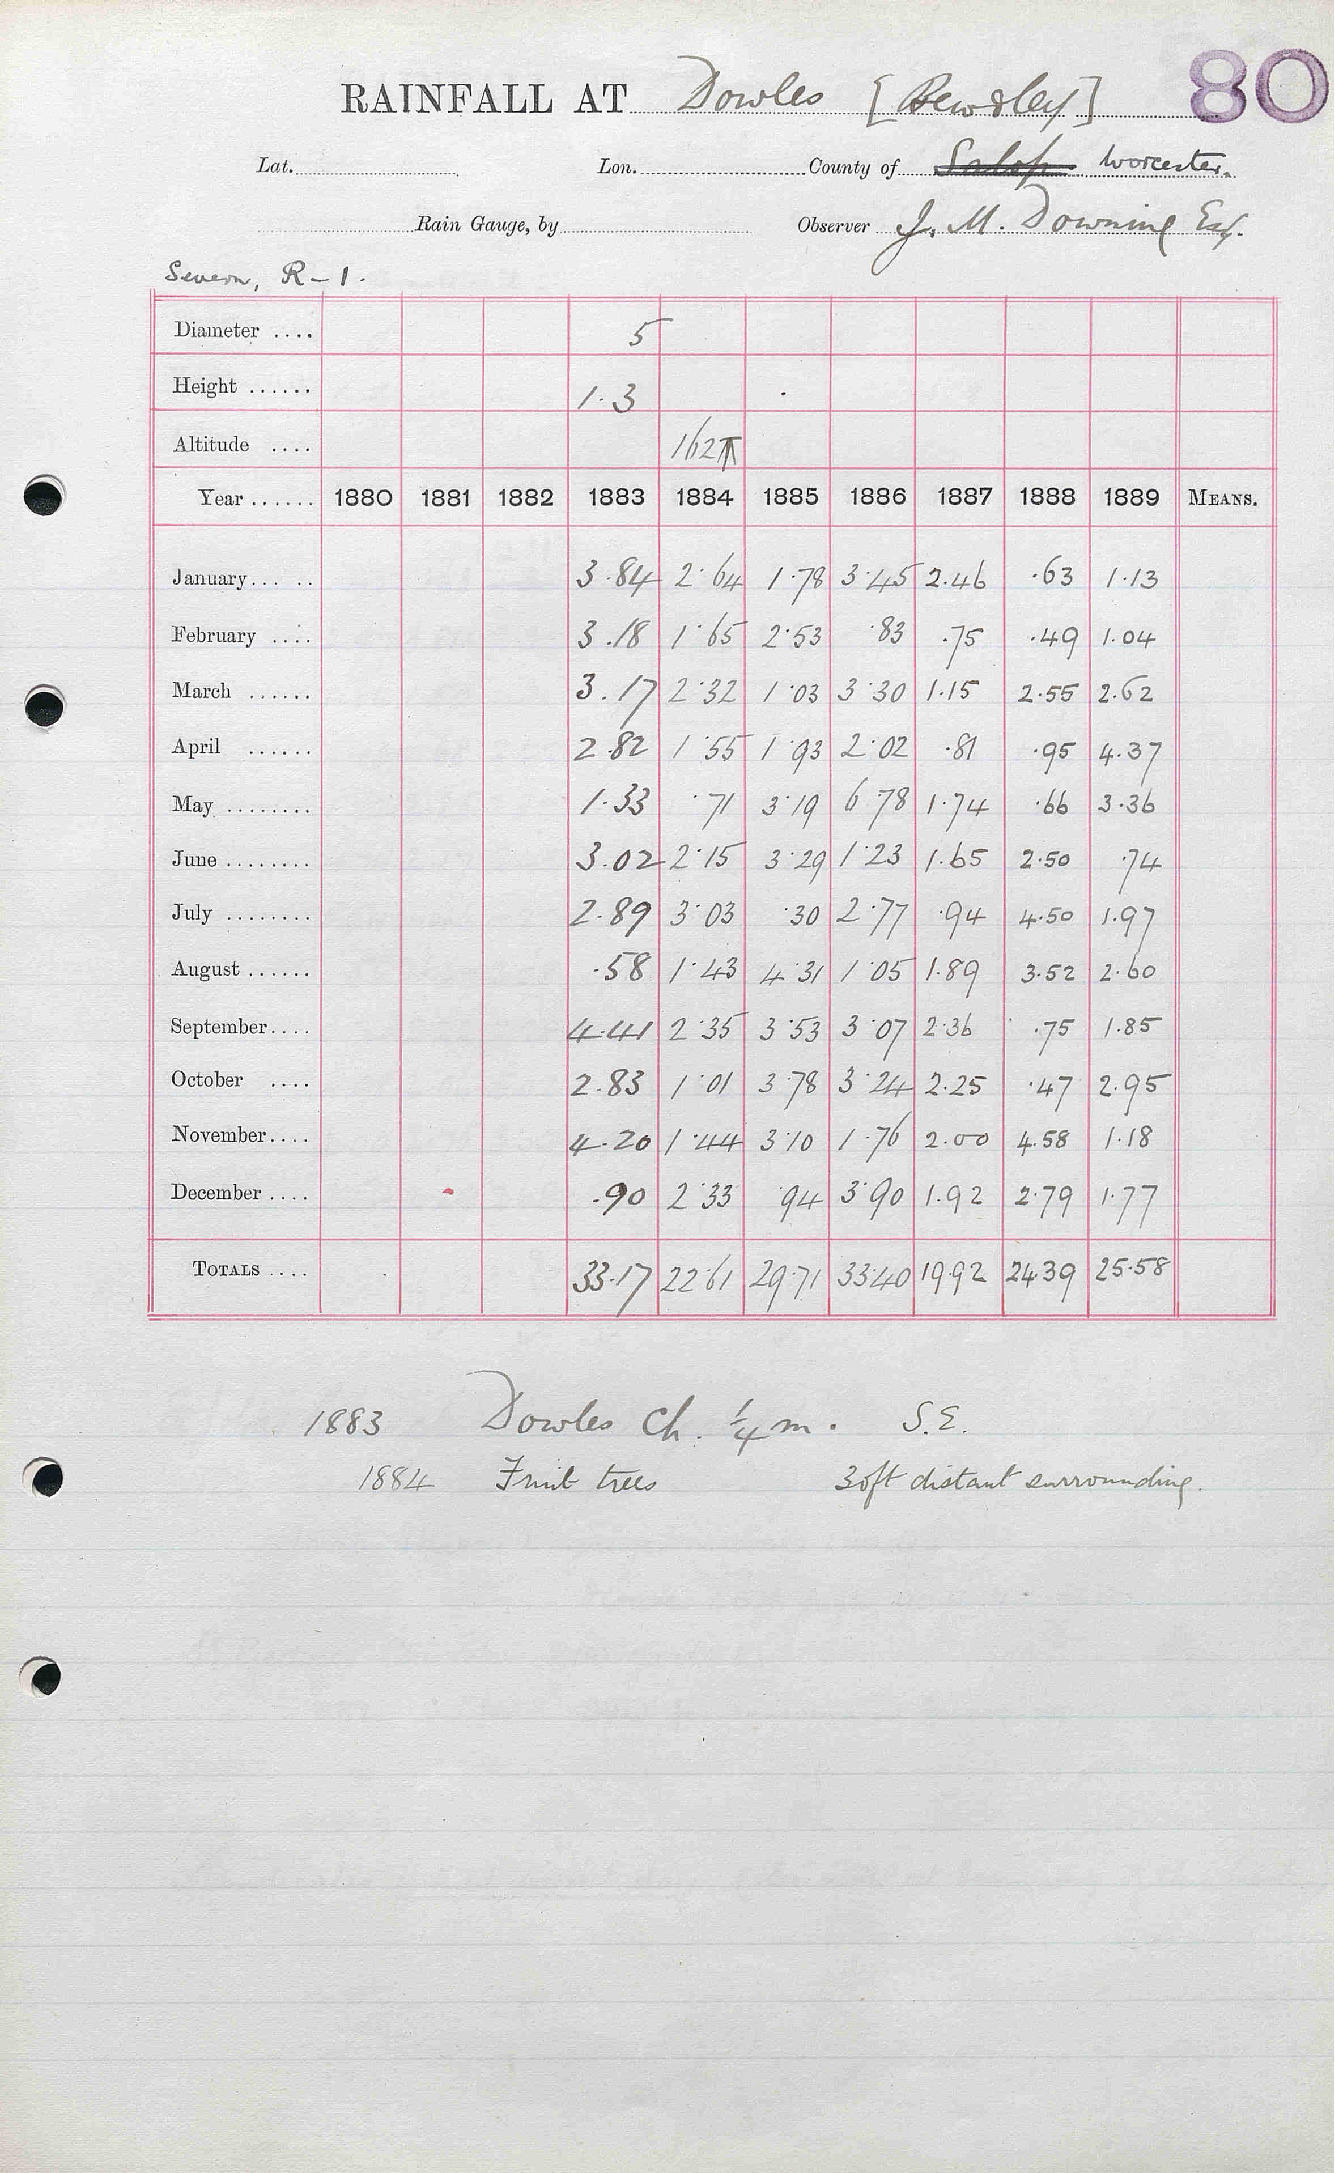 80
RAINFALL AT Dowles [Bewdley]
Lat. Lon. County of Salop Worcester.
Rain Gauge, by Observer J. M. Downing Esq.
Severn, R-1.
Diameter .... 5
Height ...... 1.3
Altitude .... 162
Year ...... 1880 1881 1882 1883 1884 1885 1886 1887 1888 1889 MEANS.
January... .. 3.84 2.64 1.78 3.45 2.46 .63 1.13
February .... 3.18 1.65 2.53 .83 .75 .49 1.04
March ...... 3.17 2.32 1.03 3.30 1.15 2.55 2.62
April ...... 2.82 1.55 1.93 2.02 .81 .95 4.37
May ........ 1.33 .71 3.19 6.78 1.74 .66 3.36
June ........ 3.02 2.15 3.29 1.23 1.65 2.50 .74
July ........ 2.89 3.03 .30 2.77 .94 4.50 1.97
August ...... .58 1.43 4.31 1.05 1.89 3.52 2.60
September.... 4.41 2.35 3.53 3.07 2.36 .75 1.85
October .... 2.83 1.01 3.78 3.24 2.25 .47 2.95
November.... 4.20 1.44 3.10 1.76 2.00 4.58 1.18
December .... .90 2.33 .94 3.90 1.92 2.79 1.77
TOTALS .... 33.17 22.61 29.71 33.40 19.92 24.39 25.58
1883 Dowles Ch. ¼ m. S.E.
1884 Fruit trees 30ft distant surrounding.